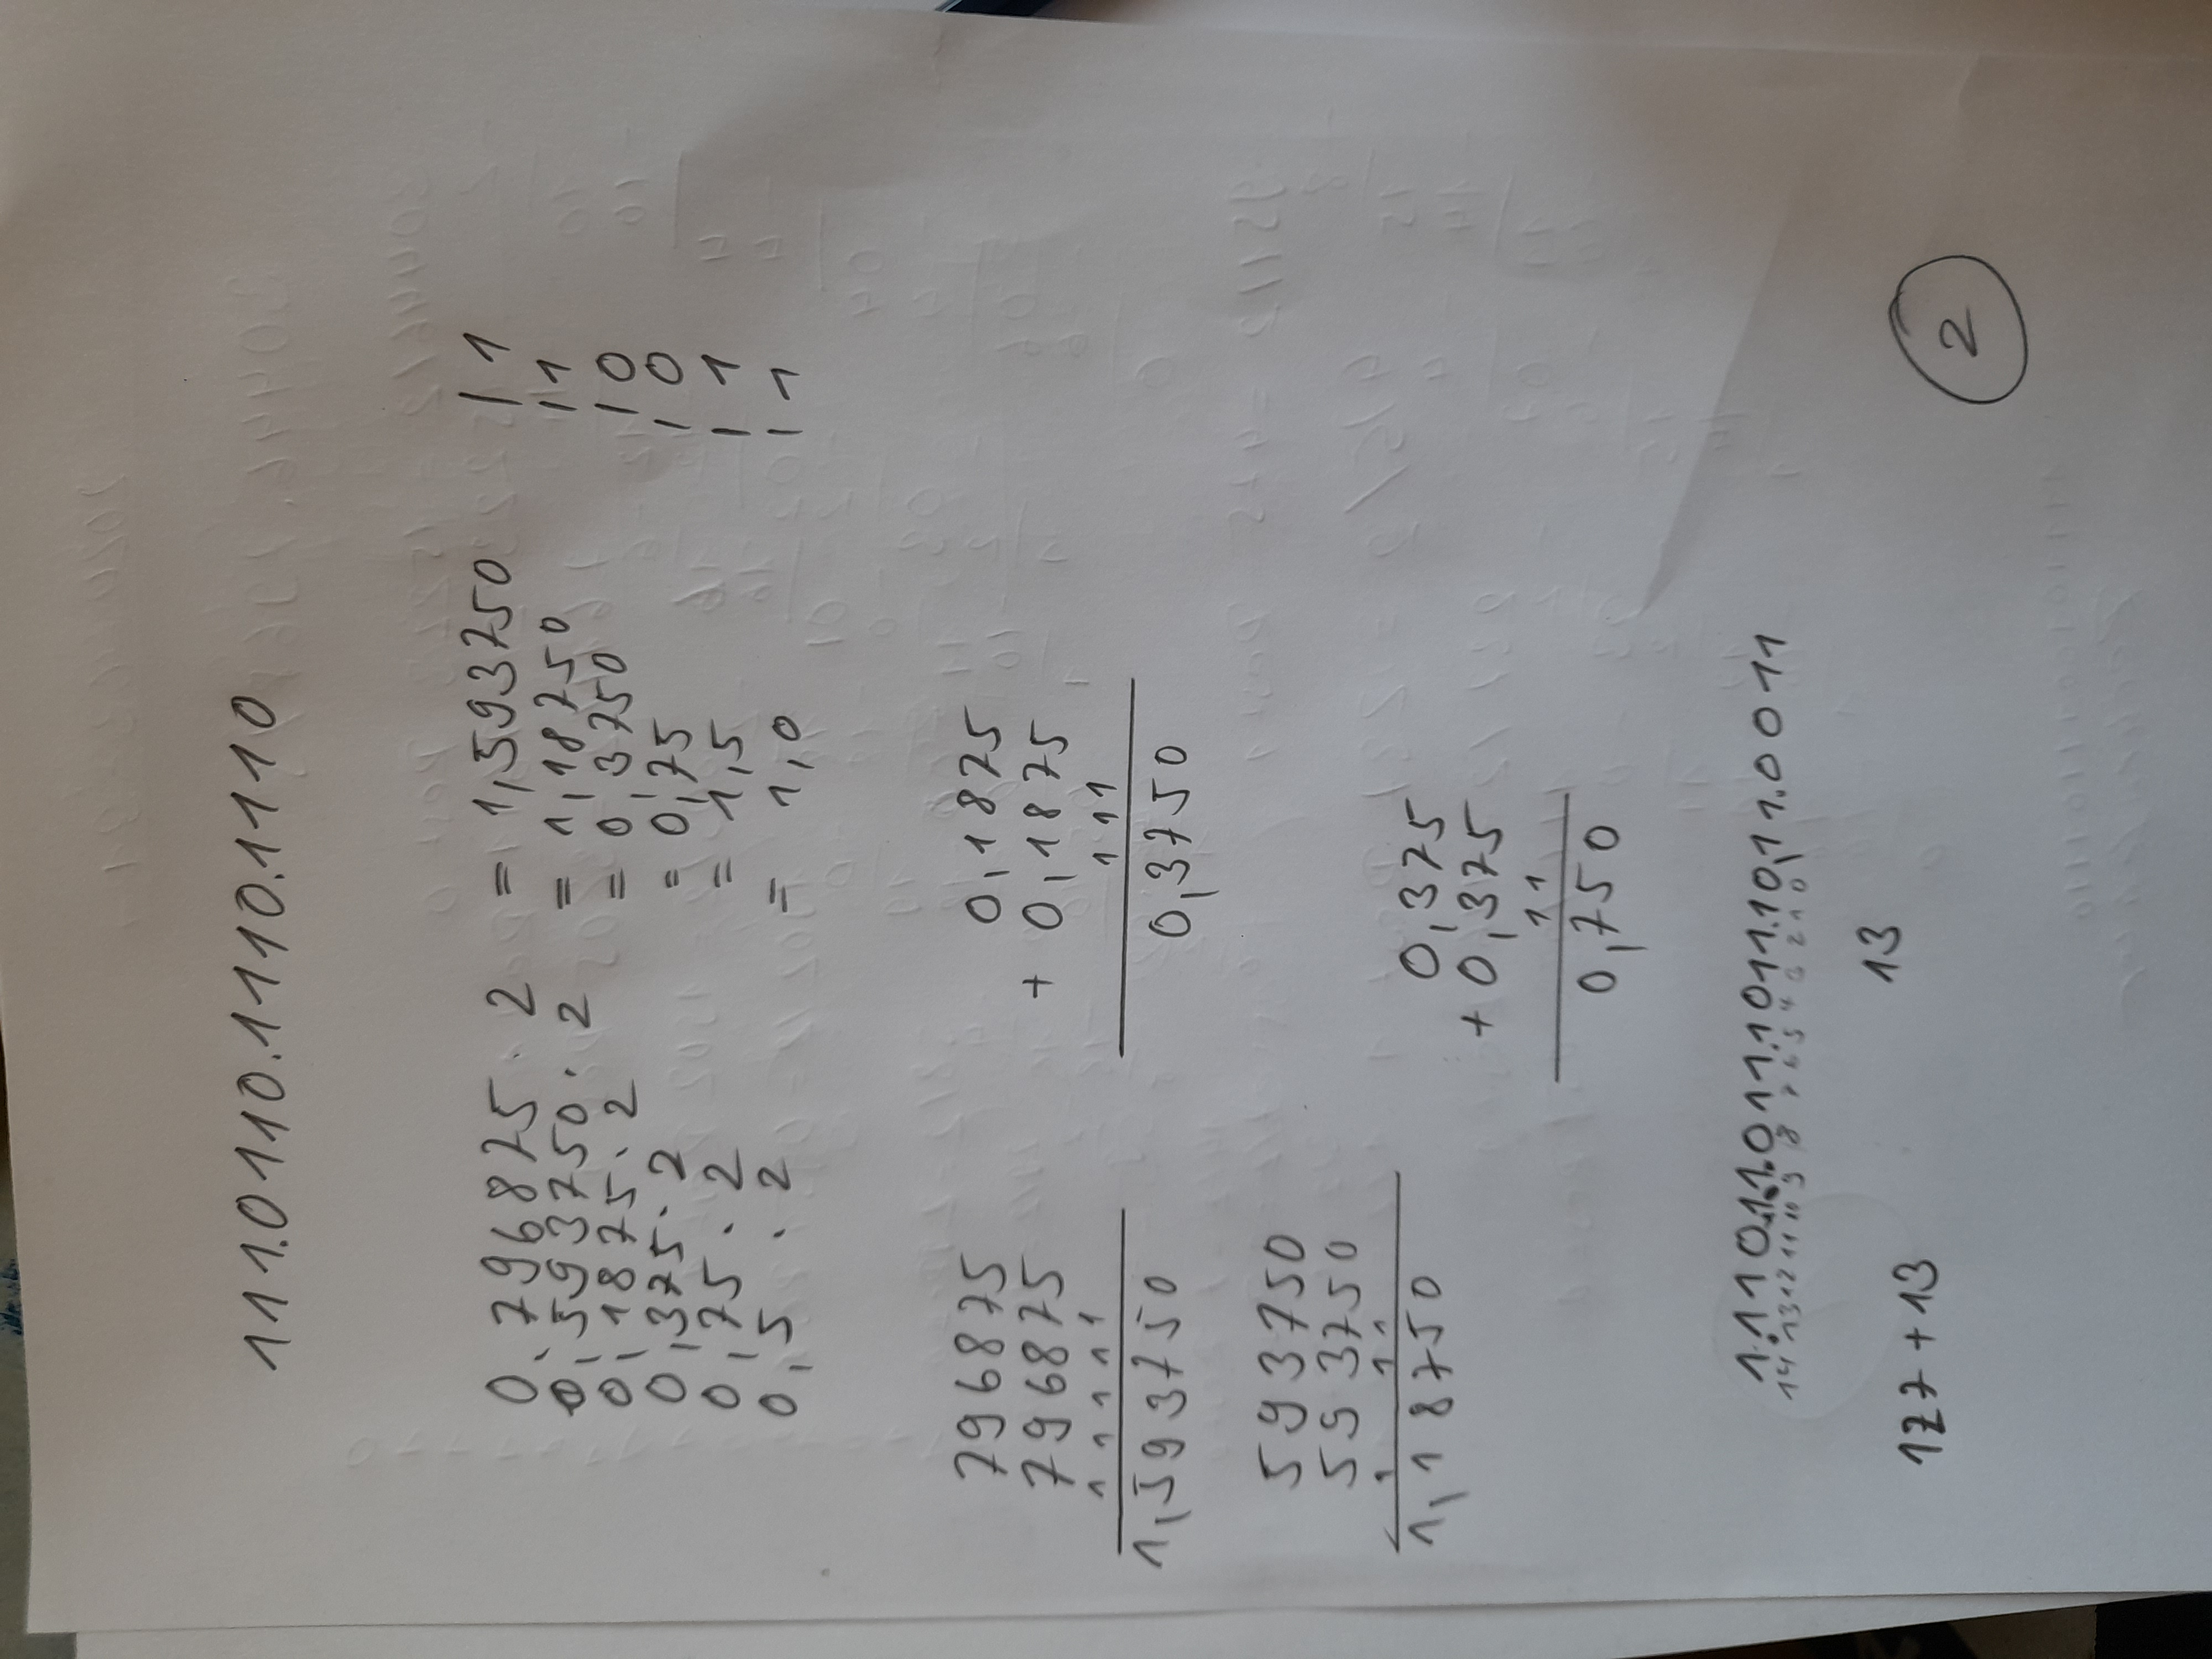 111.0110.1110.1110
0,796875 · 2 = 1,593750 | 1
0,593750 · 2 = 1,18750 | 1
0,1875 · 2 = 0,3750 | 0
0,375 · 2 = 0,75 | 0
0,75 · 2 = 1,5 | 1
0,5 · 2 = 1,0 | 1
796875
796875
1 1 1 1 1
1,593750
0,1875
+ 0,1875
1 1 1
0,3750
593750
593750
1 1 1
1,18750
0,375
+ 0,375
1 1
0,750
14 13 12 11 10 9 8 7 6 5 4 3 2 1 0
127 + 13
13
2